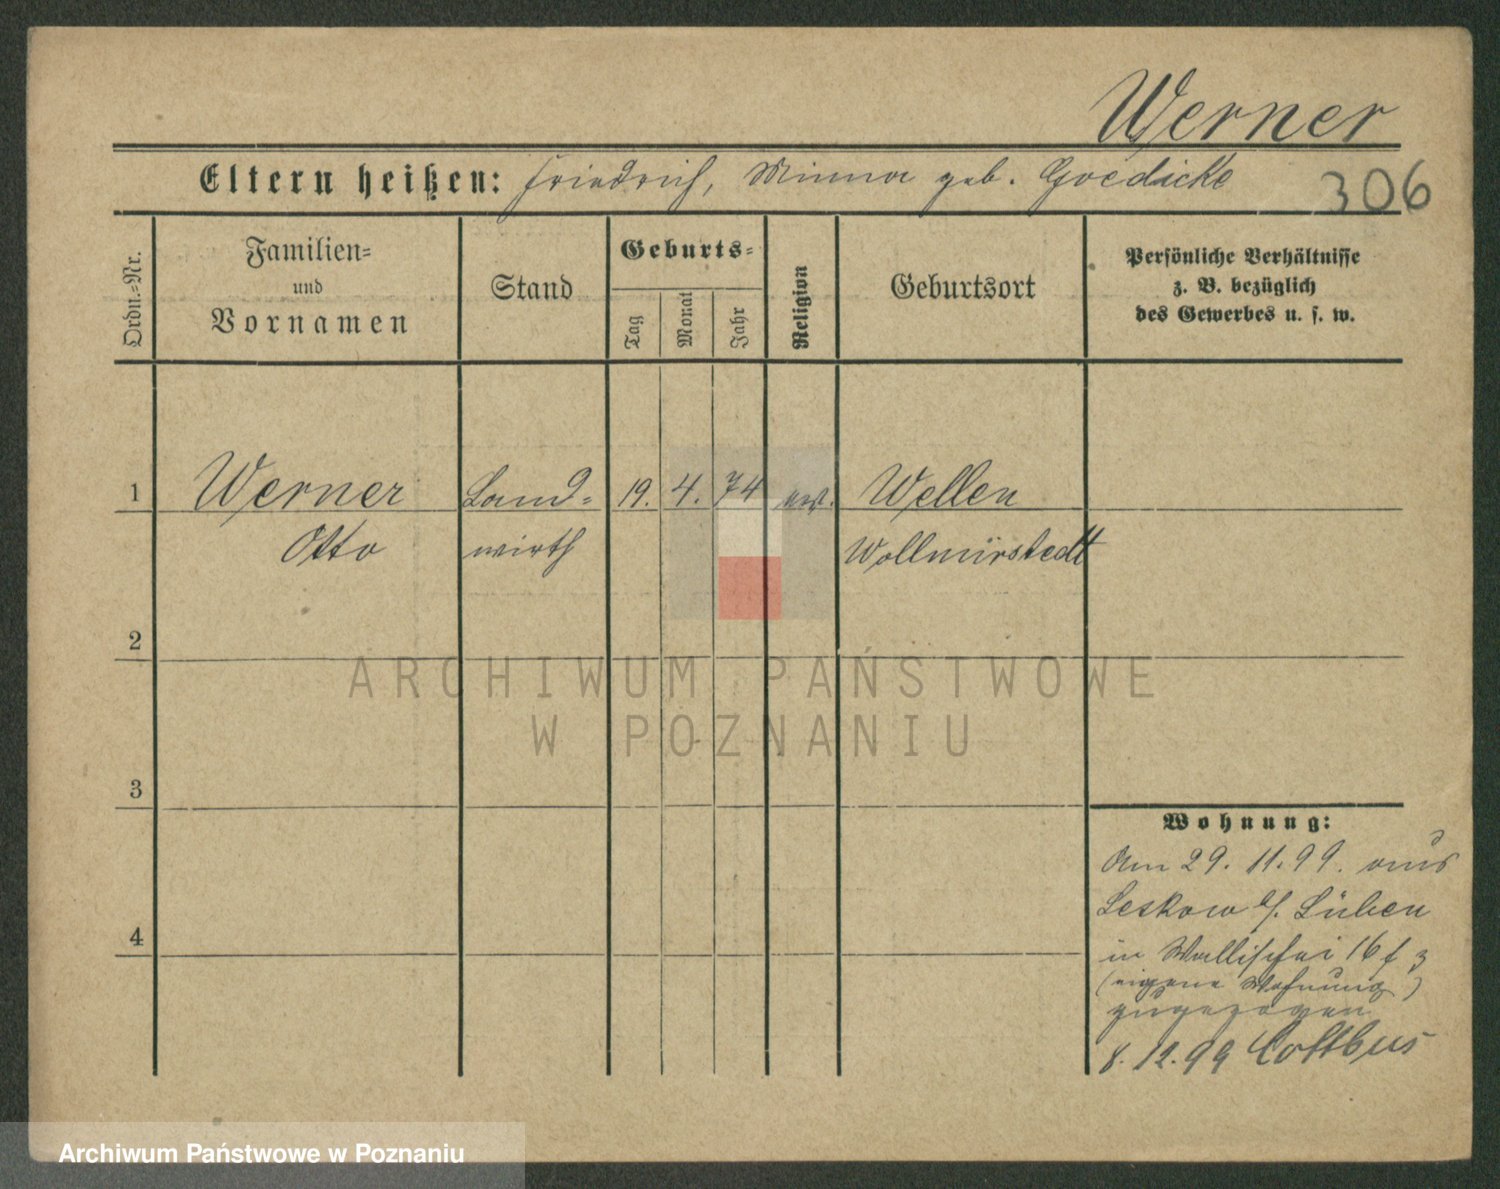 Werner
Eltern heißen: Friedrich, Minna geb. Goedicke
306
Ordn.=Nr.
Familien=
und
Vornamen
Stand
Geburts=
Tag
Monat
Jahr
Religion
Geburtsort
Persönliche Verhältnisse
z. B. bezüglich
des Gewerbes u. s. w.
1 Werner Land= 19. 4. 74 ev. Wellen
Otto wirth Wollmirstedt
2
ARCHIWUM PAŃSTWOWE
W POZNANIU
3
Wohnung:
Am 29. 11. 99. aus
Leskow b/. Lüben
4
in Wallischei 16 f 3
(eigene Wohnung)
zugezogen
8. 12. 99 Cottbus
Archiwum Państwowe w Poznaniu